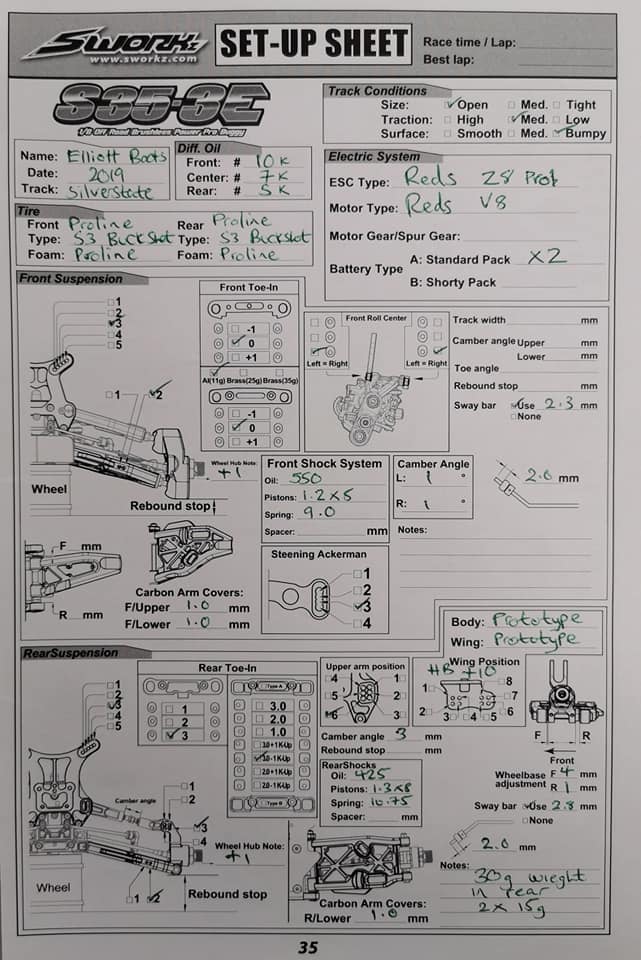 SWORKz
www.sworkz.com
SET-UP SHEET
Race time / Lap:
Best lap:
S35-3E
1/8 Off Road Brushless Power Pro Buggy
Track Conditions
Size: Open Med. Tight
Traction: High Med. Low
Surface: Smooth Med. Bumpy
Name: Elliott Boots
Date: 2019
Track: Silverstate
Diff. Oil
Front: # 10K
Center: # 7K
Rear: # 5K
Electric System
ESC Type: Reds Z8 Pro
Motor Type: Reds V8
Motor Gear/Spur Gear:
Battery Type
A: Standard Pack X2
B: Shorty Pack
Tire
Front Proline Rear Proline
Type: S3 Buckshot Type: S3 Buckshot
Foam: Proline Foam: Proline
Front Suspension
1
2
3
4
5
1 2
Wheel
Rebound stop
Wheel Hub Note:
+1
Front Toe-In
-1
0
+1
Al(11g) Brass(25g) Brass(35g)
-1
0
+1
Front Roll Center
Left = Right Left = Right
Track width mm
Camber angle Upper mm
Lower mm
Toe angle
Rebound stop mm
Sway bar Use 2.3 mm
None
2.0 mm
Front Shock System
Oil: 550
Pistons: 1.2x5
Spring: 9.0
Spacer: mm
Camber Angle
L: 1 °
R: 1 °
Notes:
F mm
R mm
Carbon Arm Covers:
F/Upper 1.0 mm
F/Lower 1.0 mm
Steening Ackerman
1
2
3
4
Body: Prototype
Wing: Prototype
RearSuspension
1
2
3
4
5
Camber angle
1
2
3
4
Wheel Hub Note:
+1
Wheel
1 2
Rebound stop
Rear Toe-In
1
2
3
Type A
3.0
2.0
1.0
3.0+1K-Up
3.0-1K-Up
2.0+1K-Up
2.0-1K-Up
Type B
Upper arm position
4 1
5 2
6 3
Camber angle 3 mm
Rebound stop mm
RearShocks
Oil: 425
Pistons: 1.3x8
Spring: 10.75
Spacer: mm
Wing Position
HB +10
1 8
7
2 3 4 5 6
F R
Front
Wheelbase adjustment F 4 mm
R 1 mm
Sway bar Use 2.8 mm
None
2.0 mm
Notes:
30g wieght
in rear
2 x 15g
Carbon Arm Covers:
R/Lower 1.0 mm
35